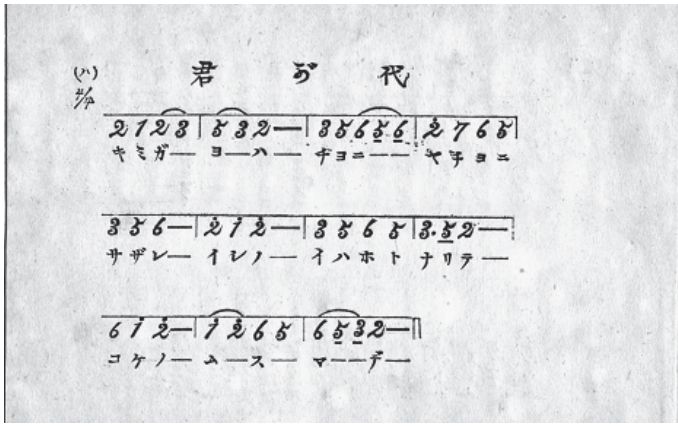 君が代
(ハ)
4/4
2 1 2 3 | 5 3 2 — | 3 5 6 5 6 | 2̇ 7 6 5 |
キミガ— ヨ—ハ— チヨニ—— ヤチヨニ
3 5 6 — | 2̇ 1̇ 2̇ — | 3 5 6 5 | 3. 5 2 —
サザレ— イシノ— イハホト ナリテ—
6 1̇ 2̇ — | 1̇ 2̇ 6 5 | 6 5 3 2 — ||
コケノ— ム—ス— マ——デ—